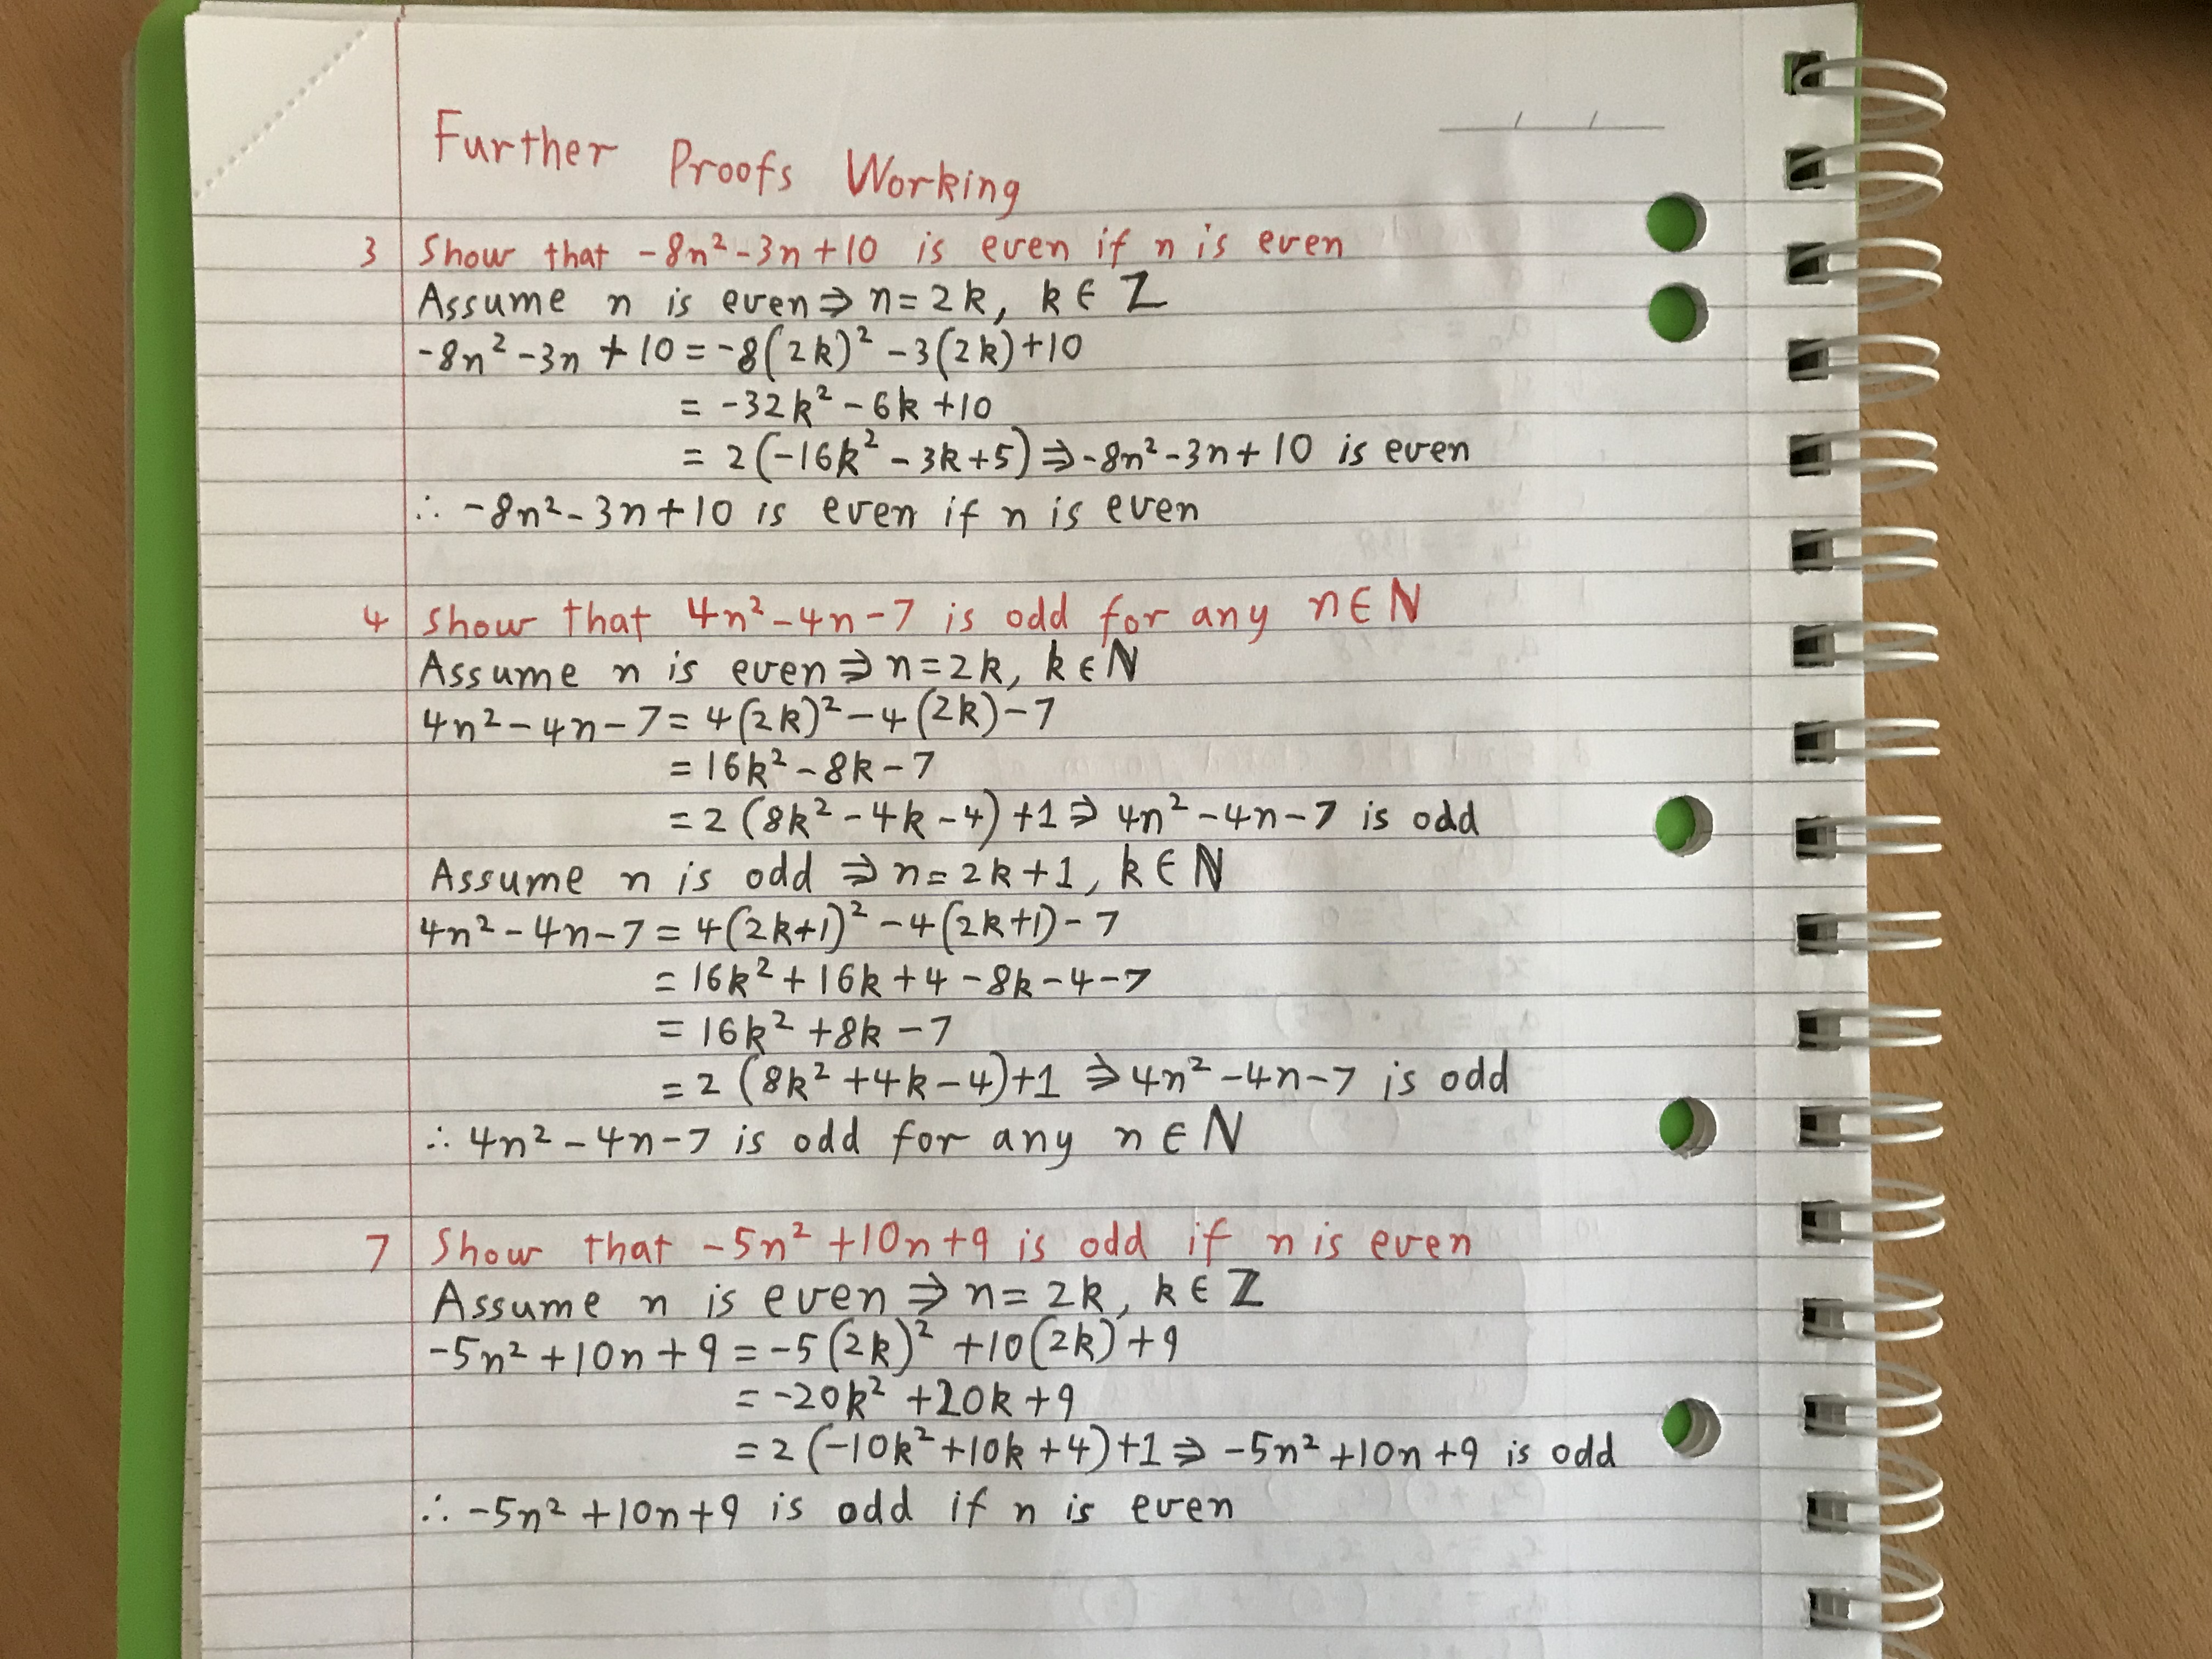 Further Proofs Working
3 Show that -8n²-3n+10 is even if n is even
Assume n is even⇒n=2k, k∈ℤ
-8n²-3n+10=-8(2k)²-3(2k)+10
= -32k²-6k+10
= 2(-16k²-3k+5)⇒-8n²-3n+10 is even
∴ -8n²-3n+10 is even if n is even
4 Show that 4n²-4n-7 is odd for any n∈ℕ
Assume n is even⇒n=2k, k∈ℕ
4n²-4n-7=4(2k)²-4(2k)-7
=16k²-8k-7
=2(8k²-4k-4)+1⇒4n²-4n-7 is odd
Assume n is odd⇒n=2k+1, k∈ℕ
4n²-4n-7=4(2k+1)²-4(2k+1)-7
=16k²+16k+4-8k-4-7
=16k²+8k-7
=2(8k²+4k-4)+1⇒4n²-4n-7 is odd
∴ 4n²-4n-7 is odd for any n∈ℕ
7 Show that -5n²+10n+9 is odd if n is even
Assume n is even⇒n=2k, k∈ℤ
-5n²+10n+9=-5(2k)²+10(2k)+9
=-20k²+20k+9
=2(-10k²+10k+4)+1⇒-5n²+10n+9 is odd
∴ -5n²+10n+9 is odd if n is even